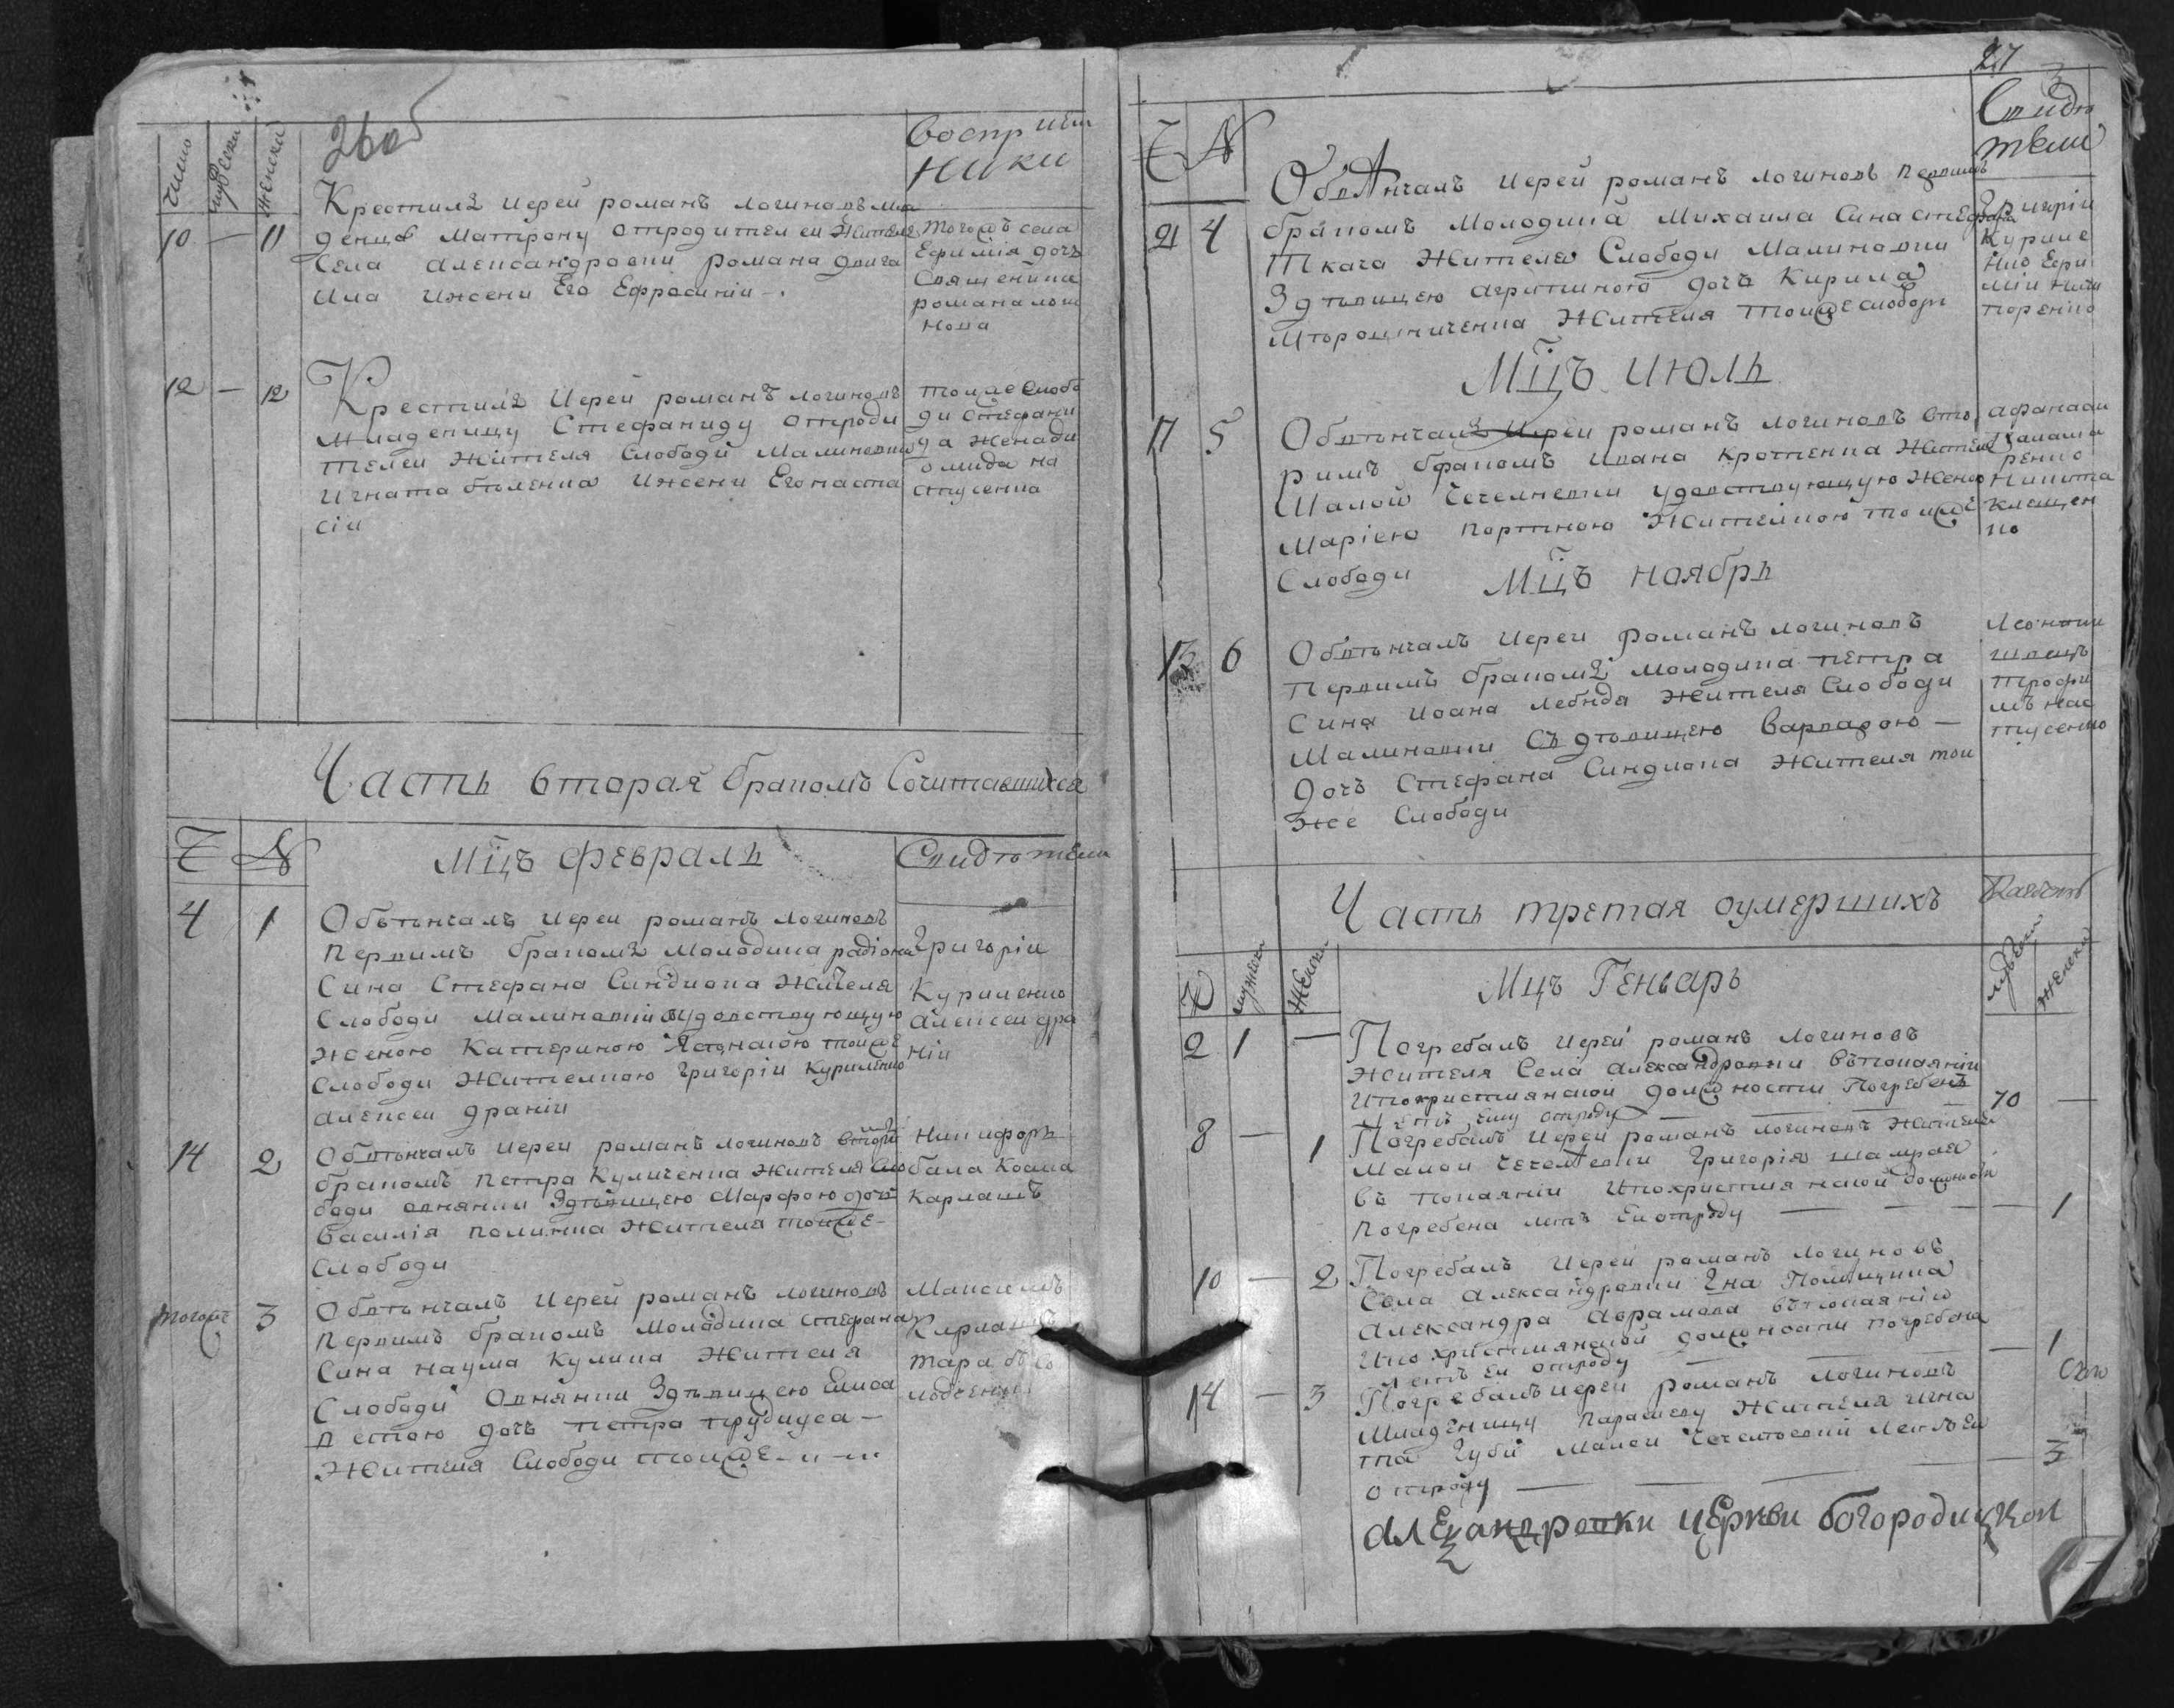 26об
число мужеска женска
Восприем
ники
Крестилъ Иереи романъ логиновъ мла
10 — 11 денца Матрону отродителеи Жителя
Села александровки романа
Ила Ижени Его Ефросинии
тогожъ села
Ефимія дочъ
Священика
романа логи
нова
12 — 12 Крестилъ Иереи романъ логиновъ
Младеницу Стефаниду отроди
телеи Жителя Слободи Малиновки
Игната беленка Ижени Его наста
сіи
тоиже слобо
ди Стефани
да жена ди
омида на
стусенка
Часть вторая бракомъ Сочитавшихся
Ч N Мцъ февраль Свидетели
4 1 Обвенчалъ Иереи романъ логиновъ
первимъ бракомъ молодика радіона
Сина Стефана Синдиока Жителя
Слободи Малиновки
женою Катериною тоиже
Слободи Жителкою григоріи Куриленко
алексеи драніи
Григоріи
Куриленко
алексеи дра
ніи
14 2 Обвенчалъ Иереи романъ логиновъ вторимъ
бракомъ петра Куличенка Жителя Сло
боди Здевицею Марфою дочъ
василія Жителя тоиже
Слободи
Никифоръ
бала Козма
Кармашъ
тогожъ 3 Обвенчалъ Иереи романъ логиновъ
первимъ бракомъ молодика стефана
Сина наума Кулика Жителя
Слободи Здевицею Елиса
ветою дочъ петра
Жителя Слободи тоиже
Максимъ
27
Ч N
Свиде
тели
Обвенчалъ Иереи романъ логиновъ первимъ
21 4 бракомъ Молодика Михаила Сина стефана
Ткача Жителя Слободи Малиновки
Здевицею агрипиною дочъ Кирила
Жителя тоиже слободи
Григоріи
Куриле
нко
Мцъ июль
17 5 Обвенчалъ Иереи романъ логиновъ вто
римъ бракомъ ивана кротенка Жителя
Малой Чечелиевки удовствующую жено
Маріею Жителкою тоиже
Слободи
афанасіи
ренко
Никита
Клещен
ко
Мцъ ноябрь
13 6 Обвенчалъ Иереи романъ логиновъ
первимъ бракомъ молодика петра
Сина Иоана лебидя Жителя Слободи
Малиновки Съ девицею варварою —
дочъ Стефана Синдиока Жителя тои
же Слободи
Леонтии
швецъ
трофи
мъ нас
тусенко
Часть третая оумершихъ
мужеск женск Мцъ Генварь мужеск женска
2 1 — Погребалъ Иереи романъ логиновъ
Жителя Села александровки впокаяніи
Ипохристиянской должности Погребенъ
летъ ему отроду — 70 —
8 — 1 Погребалъ Иереи романъ логиновъ Жителя
Малои Чечелиевки Григорія шамрая
въ покаяніи Ипохристиянской должности
погребена летъ Еи отроду — 1
10 — 2 Погребалъ Иереи романъ логиновъ
Села александровки Гна Помещика
александра аврамова въ покаяніи
Ипохристиянской должности погребена
летъ еи отроду — 1
14 — 3 Погребалъ иереи романъ логиновъ
Младеницу параскеву Жителя игна
та губи Малои Чечелиевки Летъ еи
отроду — 3
александровки церкви богородицкои